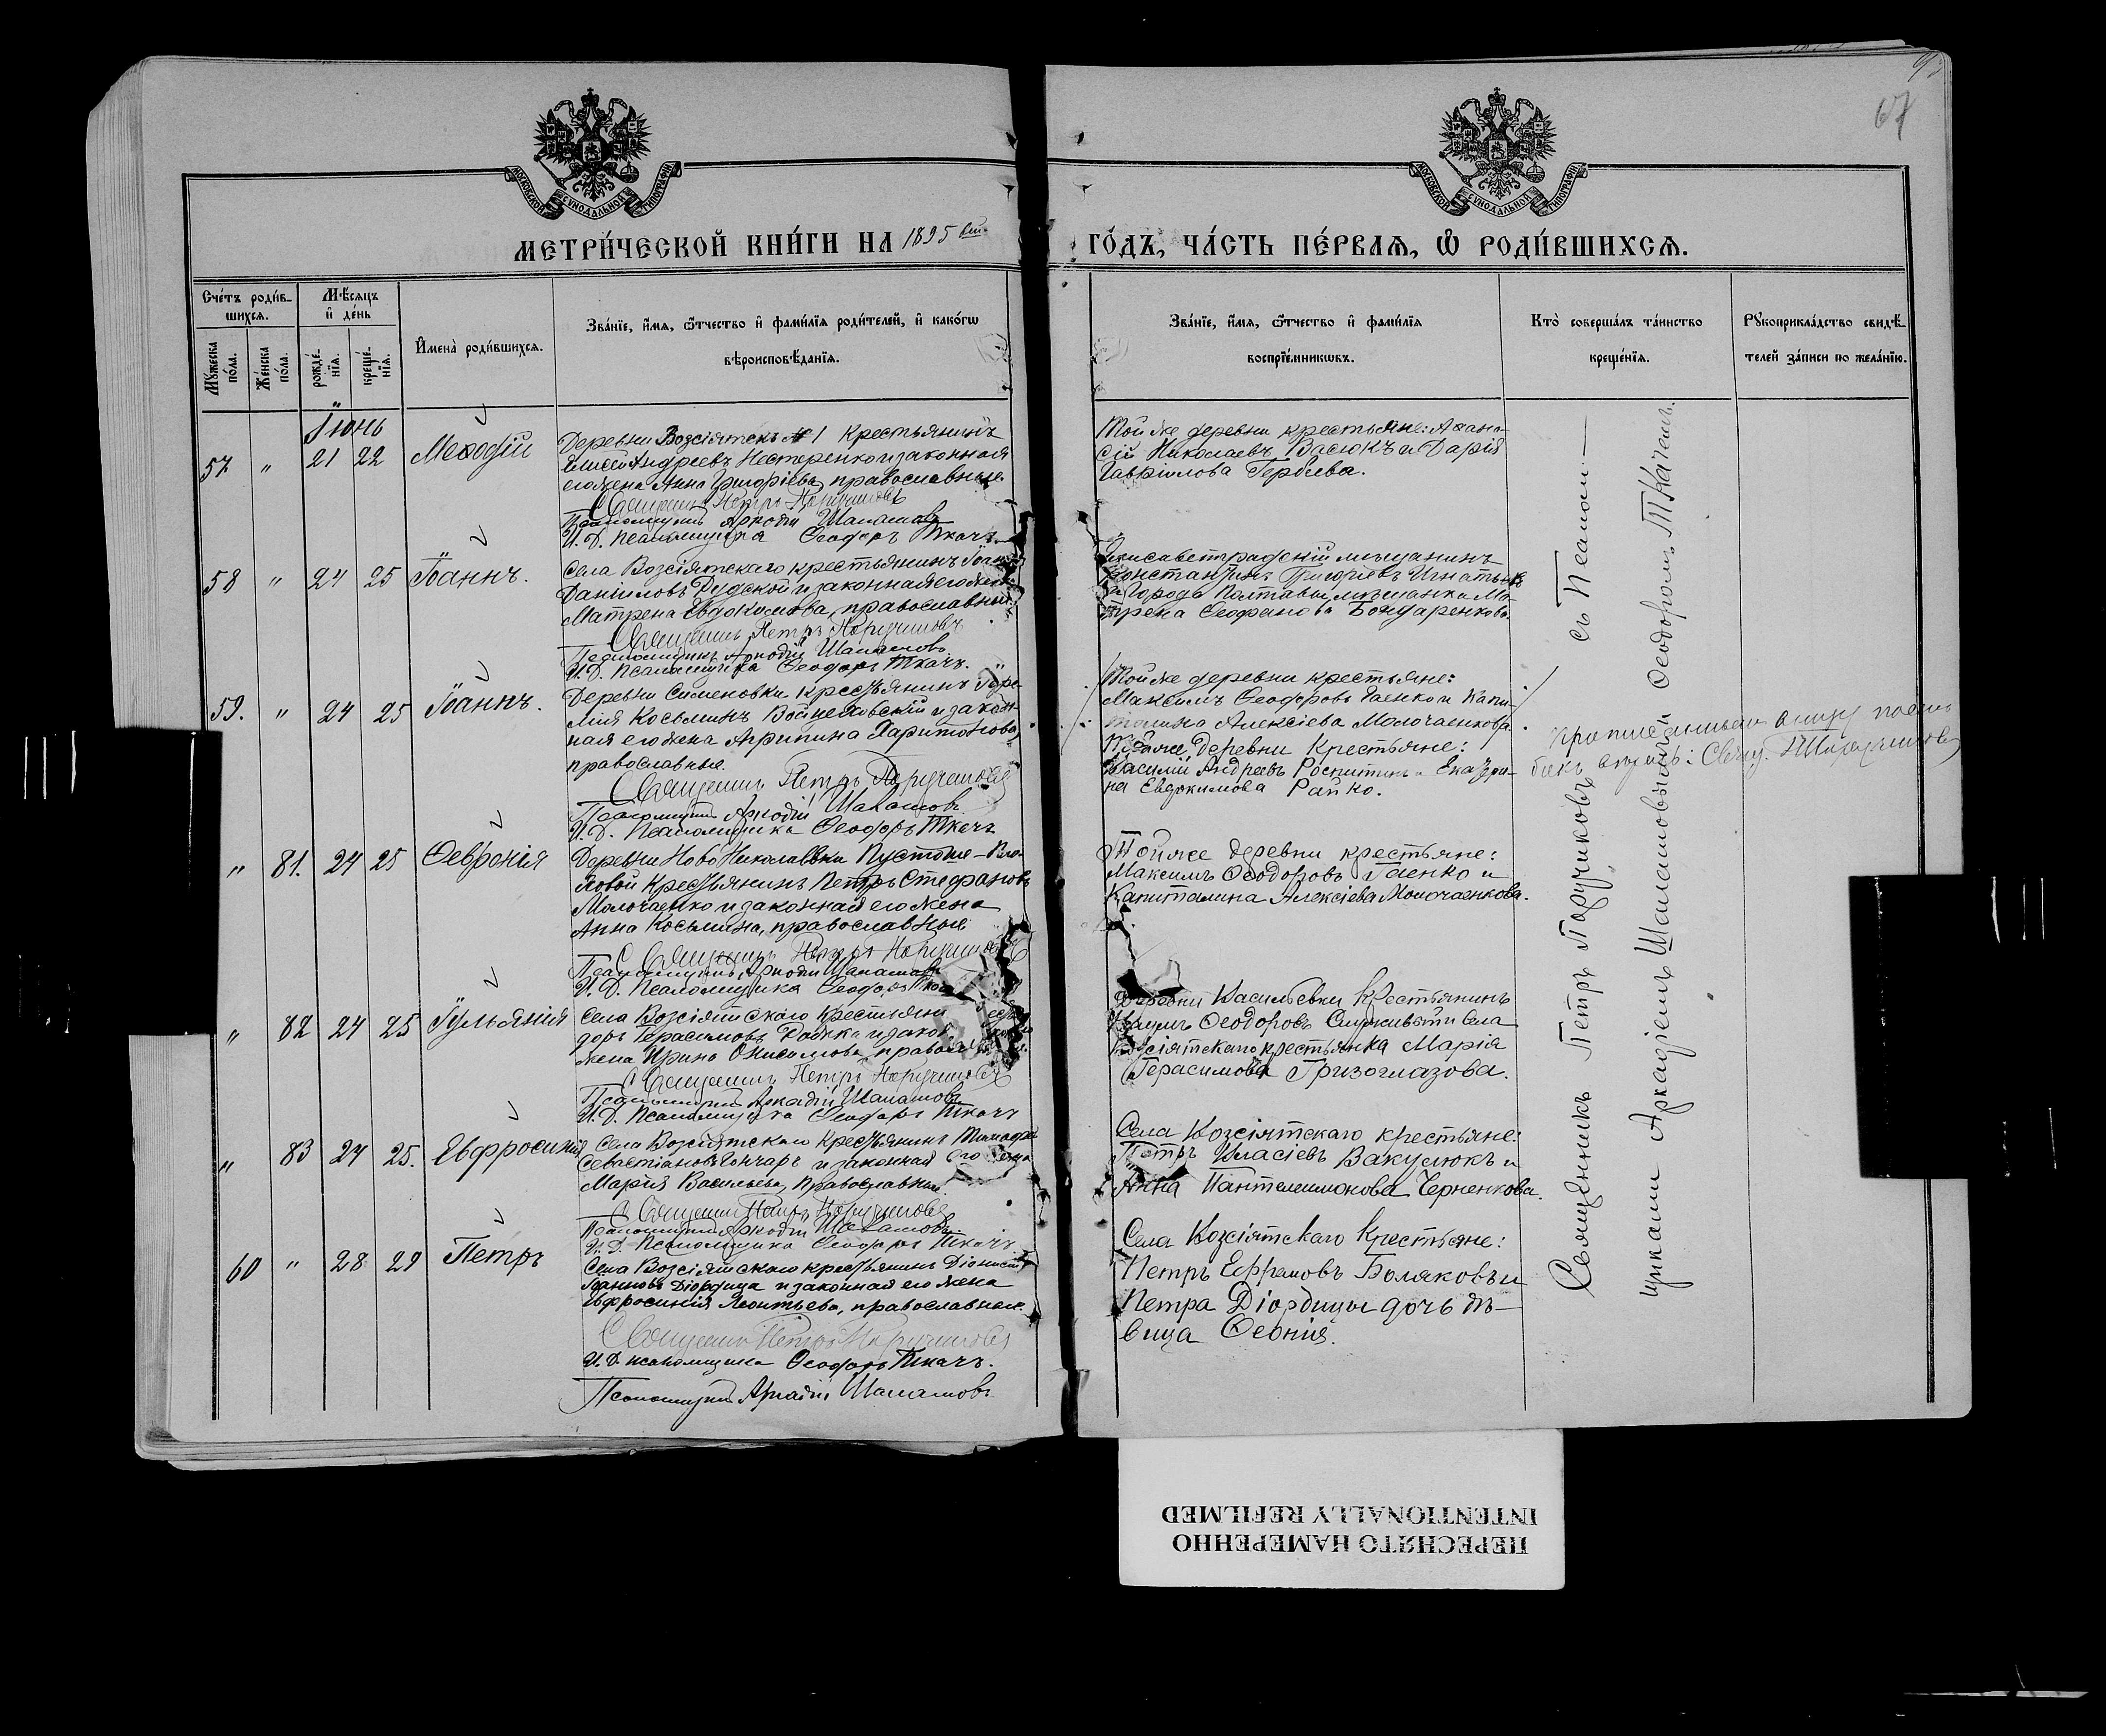 67
МОСКОВСКОЙ СУНОДАЛЬНОЙ ТИПОГРАФІИ
МОСКОВСКОЙ СУНОДАЛЬНОЙ ТИПОГРАФІИ
МЕТРИ́ЧЕСКОЙ КНИ́ГИ НА 1895
ГО́ДЪ, ЧА́СТЬ ПЕ́РВАѦ, Ѡ҆ РОДИ́ВШИХСѦ.
Сче́тъ роди́в-
шихсѧ.
Мѣ́сѧцъ
и҆ де́нь
Мꙋ́жеска
по́ла.
Же́нска
по́ла.
рожде́-
нїѧ.
креще́-
нїѧ.
И҆мена̀ роди́вшихсѧ.
Зва́нїе, и҆́мѧ, ѻ҆́тчество и҆ фами́лїѧ роди́телей, и҆ како́гѡ
вѣроисповѣ́данїѧ.
Зва́нїе, и҆́мѧ, ѻ҆́тчество и҆ фами́лїѧ
воспрїе́мникѡвъ.
Кто̀ соверша́лъ та́инство
креще́нїѧ.
Рꙋкоприкла́дство свидѣ́-
телей за́писи по жела́нїю.
Іюнь
57 " 21 22 Меѳодій
Деревни Возсіятскъ № 1 Крестьянинъ
Елисей Андреевъ Нестеренко и законная
его жена Анна Григоріева, православные.
Священникъ Петръ Поручиковъ
Псаломщикъ Аркадій Шаламовъ
И. Д. Псаломщика Ѳеодоръ Ткачъ
Той же деревни крестьяне: Аѳана-
сій Николаевъ Васюкъ и Дарія
Гавріилова Гербіева.
58 " 24 25 Іоаннъ.
Села Возсіятскаго крестьянинъ Іоаннъ
Даніиловъ Рудской и законная его жена
Матрена Евдокимова, православные.
Священникъ Петръ Поручиковъ
Псаломщикъ Аркадій Шаламовъ
И. Д. Псаломщика Ѳеодоръ Ткачъ.
Елисаветградскій мѣщанинъ
Константинъ Григоріевъ Игнатьевъ
и Города Полтавы мѣщанка Ма-
трена Ѳеофанова Бондаренкова.
59. " 24 25 Іоаннъ.
Деревни Семеновки крестьянинъ
Косьминъ Войцеховскій и закон-
ная его жена Агрипина Харитонова,
православные.
Священникъ Петръ Поручиковъ
Псаломщикъ Аркадій Шаламовъ
И. Д. Псаломщика Ѳеодоръ Ткачъ
Той же деревни крестьяне:
Максимъ Ѳеодоровъ Гаенко и Капи-
толина Алексіева Молочаенкова.
Той же Деревни Крестьяне:
Василій Андреевъ Роспитинъ и Екатери-
на Евдокимова Райко.
" 81. 24 25 Ѳевронія
Деревни Ново Николаевки Пустоше-
Крестьянинъ Петръ Стефановъ
Молочаенко и законная его жена
Анна Косьмина, православные
Священникъ Петръ Поручиковъ
Псаломщикъ Аркадій Шаламовъ
И. Д. Псаломщика Ѳеодоръ
Той же деревни крестьяне:
Максимъ Ѳеодоровъ Гаенко и
Капиталина Алексіева Молочаенкова.
" 82 24 25 Іуліанія
Села Возсіятскаго Крестьянинъ
доръ Герасимовъ и закон
жена Ирина Онисимова
Священникъ Петръ Поручиковъ
Псаломщикъ Аркадій Шаламовъ
И. Д. Псаломщика Ѳеодоръ Ткачъ
Деревни Касильевки Крестьянинъ
Наумъ Ѳеодоровъ и села
Возсіятскаго крестьянка Марія
Герасимова Гризоглазова.
" 83 24 25. Евфросинія
Села Возсіятскаго Крестьянинъ Тимоѳей
Севастіановъ Гончаръ и законная его жена
Марія Васильева, Православные.
Священникъ Петръ Поручиковъ
Псаломщикъ Аркадій Шаламовъ.
И. Д. Псаломщика Ѳеодоръ Ткачъ
Села Возсіятскаго крестьяне:
Петръ Власіевъ Вакулюкъ и
Анна Пантелеимонова Черненкова.
60 " 28 29 Петръ
Села Возсіятскаго крестьянинъ Діонисій
Іоанновъ Діордица и законная его жена
Евфросинія Леонтьева, православные
Священникъ Петръ Поручиковъ
И. Д. псаломщика Ѳеодоръ Ткачъ.
Псаломщикъ Аркадій Шаламовъ
Села Возсіятскаго Крестьяне:
Петръ Ефремовъ Боляковъ и
Петра Діордицы дочь дѣ-
вица Ѳеонія.
Священникъ Петръ Поручиковъ съ Псалом-
щиками Аркадіемъ Шаламовымъ и Ѳеодоромъ Ткачемъ.
ПЕРЕСНЯТО НАМЕРЕННО
INTENTIONALLY REFILMED